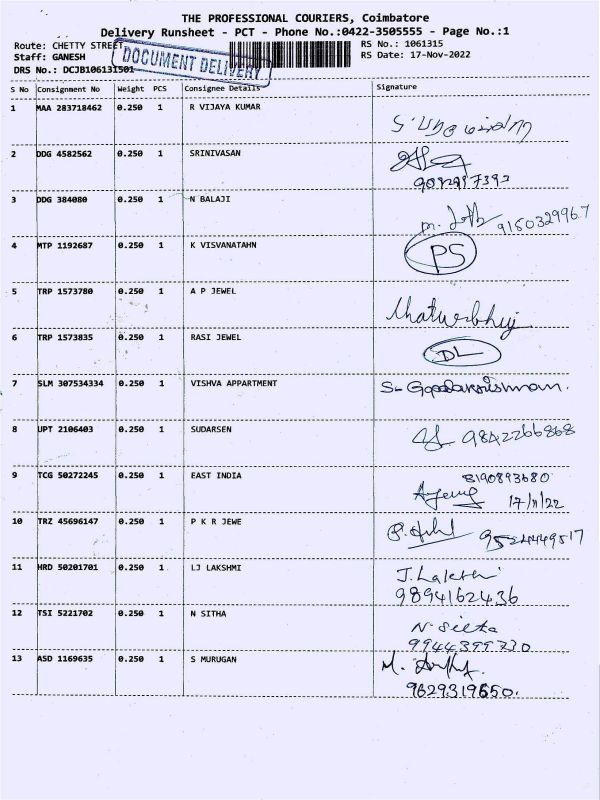 THE PROFESSIONAL COURIERS, Coimbatore
Delivery Runsheet - PCT - Phone No.:0422-3505555 - Page No.:1
Route: CHETTY STREET RS No.: 1061315
Staff: GANESH RS Date: 17-Nov-2022
DOCUMENT DELIVERY
DRS No.: DCJB106131501
S No Consignment No Weight PCS Consignee Details Signature
1 MAA 283718462 0.250 1 R VIJAYA KUMAR
2 DDG 4582562 0.250 1 SRINIVASAN
3 DDG 384080 0.250 1 N BALAJI
9150329967
4 MTP 1192687 0.250 1 K VISVANATAHN PS
5 TRP 1573780 0.250 1 A P JEWEL Chaturbhuj
6 TRP 1573835 0.250 1 RASI JEWEL DL
7 SLM 307534334 0.250 1 VISHVA APPARTMENT S- Gopalakrishnan.
8 UPT 2106403 0.250 1 SUDARSEN 9842266868
9 TCG 50272245 0.250 1 EAST INDIA 8190893680
17/11/22
10 TRZ 45696147 0.250 1 P K R JEWE 9524449517
11 HRD 50201701 0.250 1 LJ LAKSHMI J.
9894162436
12 TSI 5221702 0.250 1 N SITHA N.
9944399730
13 ASD 1169635 0.250 1 S MURUGAN M.
9629319650.